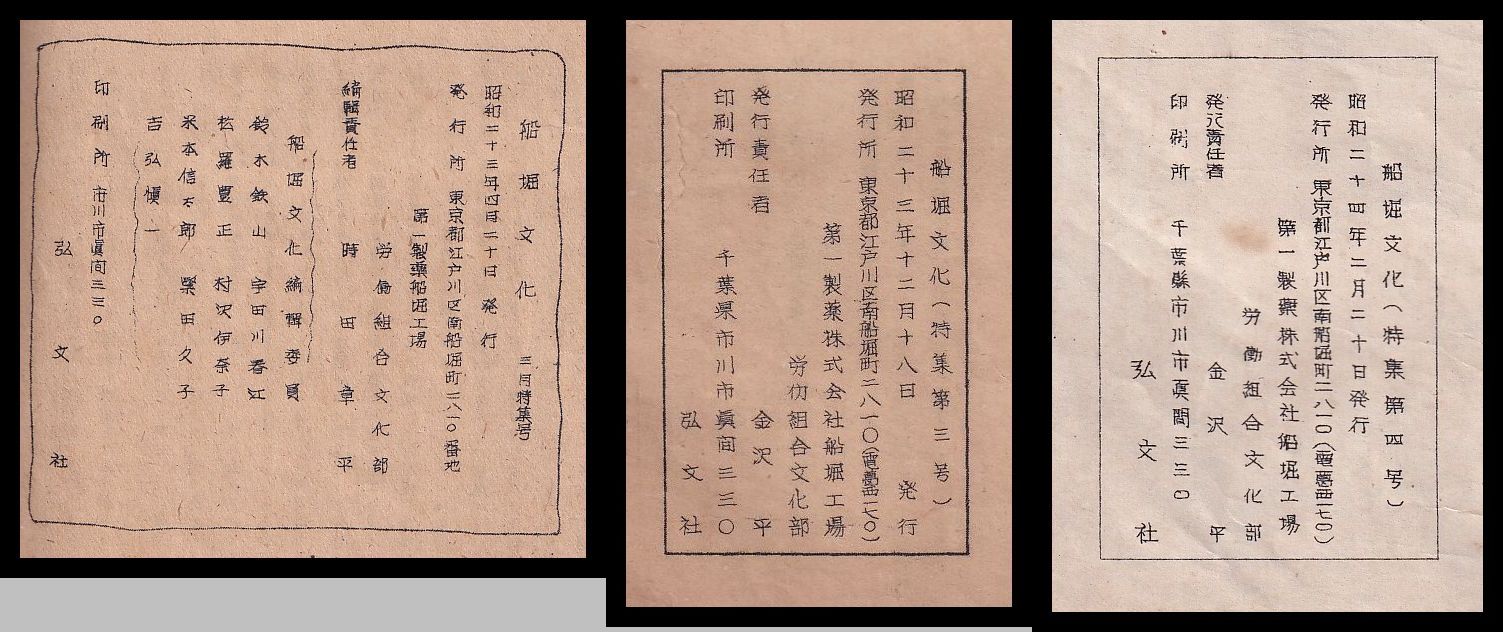 船堀文化 三月特集号
昭和二十三年四月二十日 発行
発行所 東京都江戸川区南船堀町二八一〇番地
第一製薬船堀工場
労働組合文化部
編輯責任者 時田章平
船堀文化編輯委員
鈴木鉄山 宇田川春江
松羅豊正 村沢伊奈子
米本信太郎 栗田久子
吉弘愼一
印刷所 市川市眞间三三〇
弘文社
船堀文化(特集第三号)
昭和二十三年十二月十八日 発行
発行所 東京都江戸川区南船堀町二八一〇(電葛西一七〇)
第一製薬株式会社船堀工場
労仂組合文化部
発行責任者 金沢平
印刷所 千葉県市川市眞间三三〇
弘文社
船堀文化(特集第四号)
昭和二十四年二月二十日発行
発行所 東京都江戸川区南船堀町二八一〇(電葛西一七〇)
第一製薬株式会社船堀工場
労働組合文化部
発行責任者 金沢平
印刷所 千葉縣市川市眞間三三〇
弘文社